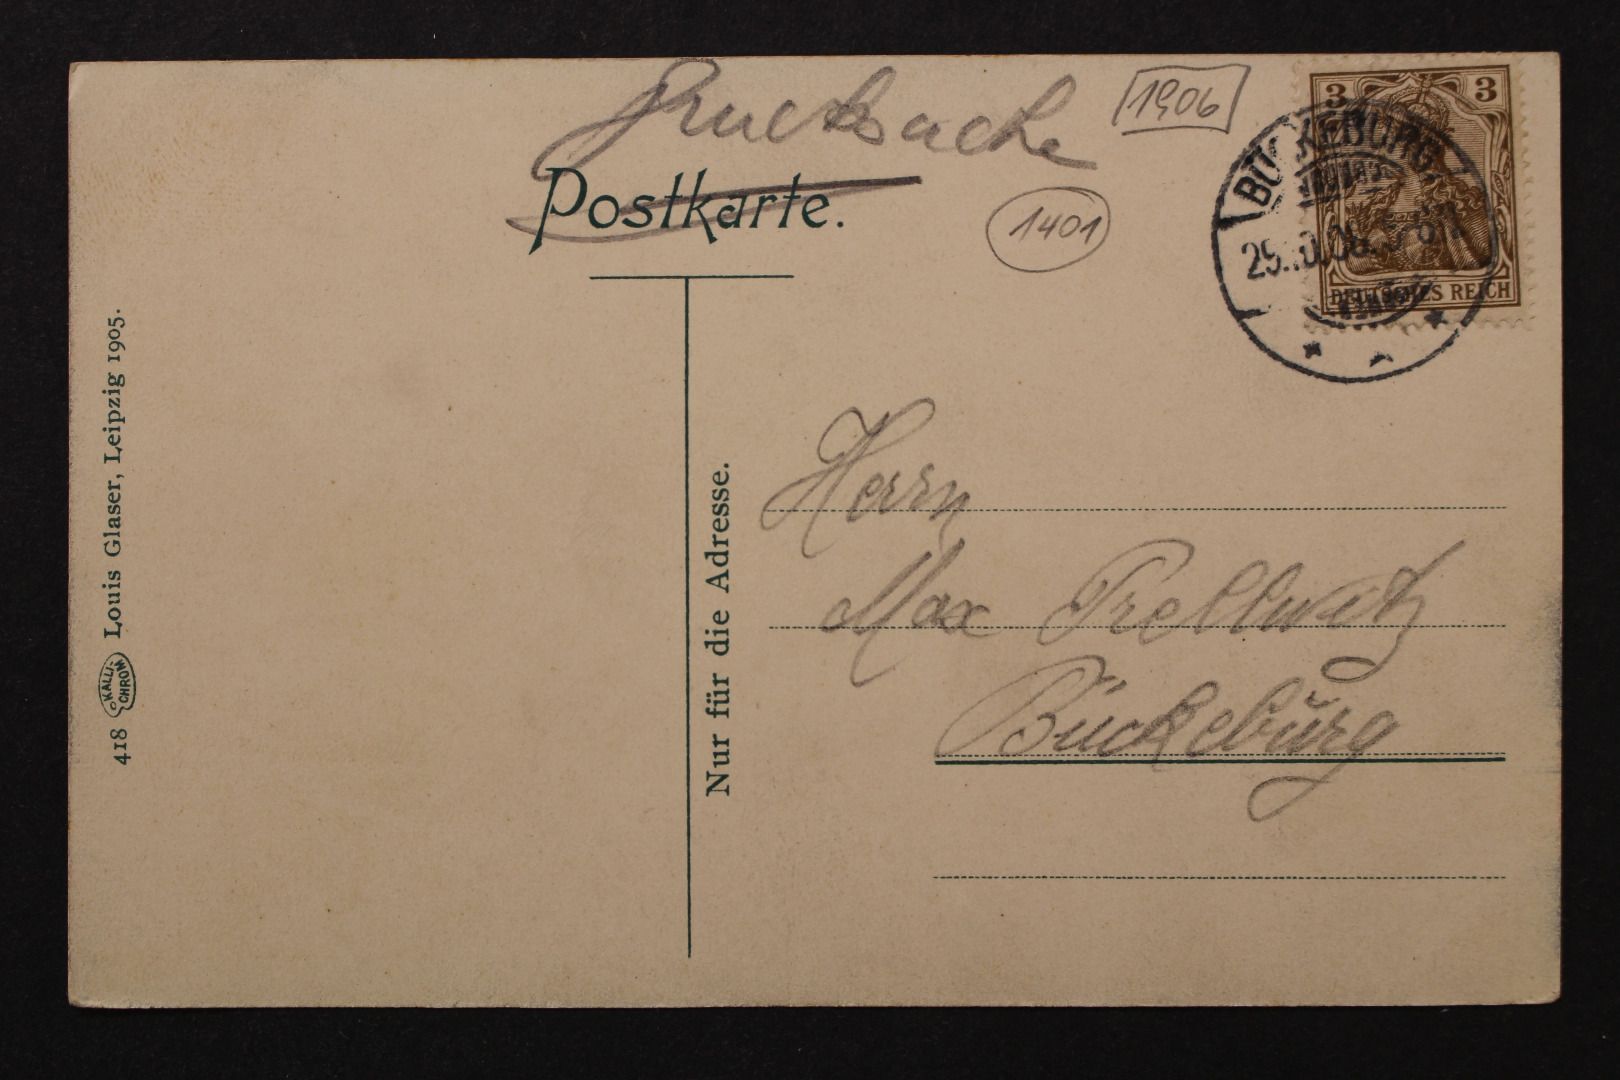 Drucksache
1906
Postkarte.
1401
3 3
DEUTSCHES REICH
BÜCKEBURG
Nur für die Adresse.
Herrn
Max Prellwitz
Bückeburg
418 KALLI-CHROM Louis Glaser, Leipzig 1905.